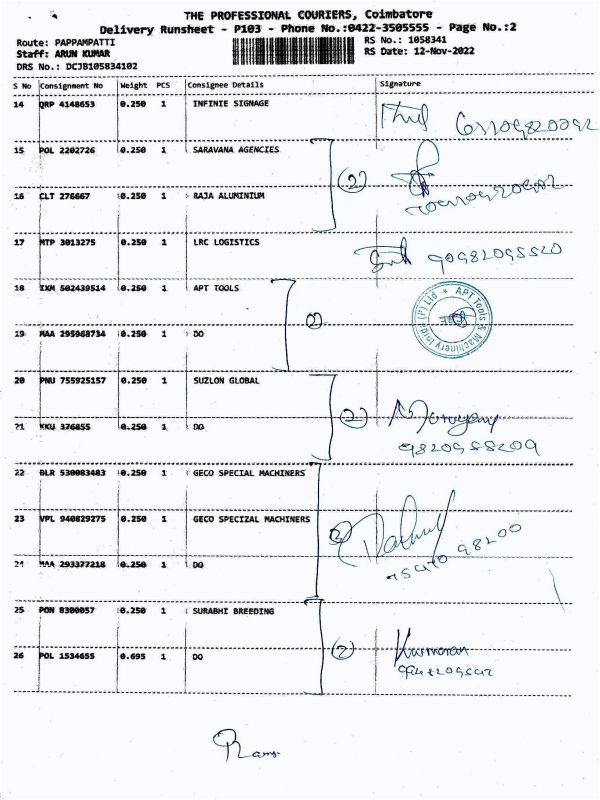 THE PROFESSIONAL COURIERS, Coimbatore
Delivery Runsheet - P103 - Phone No.:0422-3505555 - Page No.:2
Route: PAPPAMPATTI RS No.: 1058341
Staff: ARUN KUMAR RS Date: 12-Nov-2022
DRS No.: DCJB105834102
S No Consignment No Weight PCS Consignee Details Signature
14 QRP 4148653 0.250 1 INFINIE SIGNAGE
15 POL 2202726 0.250 1 SARAVANA AGENCIES
(2)
16 CLT 276667 0.250 1 RAJA ALUMINIUM
17 MTP 3013275 0.250 1 LRC LOGISTICS
18 IXM 502439514 0.250 1 APT TOOLS
(2)
APT Tools & Machinery India (P) Ltd *
19 MAA 295968734 0.250 1 DO
20 PNU 755925157 0.250 1 SUZLON GLOBAL
(2)
21 KKU 376855 0.250 1 DO
22 BLR 530083483 0.250 1 GECO SPECIAL MACHINERS
23 VPL 940829275 0.250 1 GECO SPECIZAL MACHINERS
24 MAA 293377218 0.250 1 DO
25 PON 8300057 0.250 1 SURABHI BREEDING
(2)
26 POL 1534655 0.695 1 DO